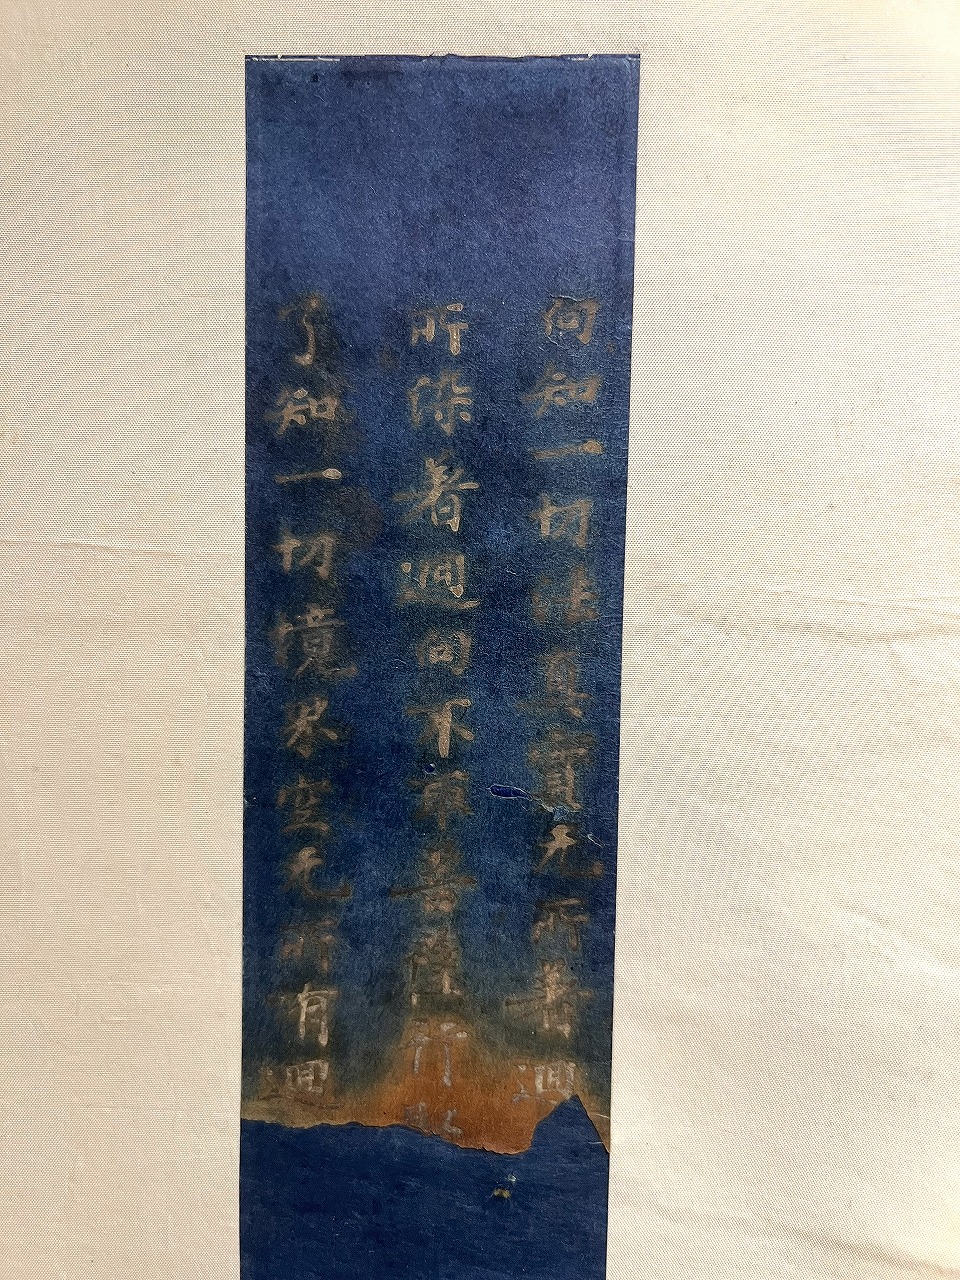 向知一切法真實无所著迴
所染著迴向不菩薩行
了知一切境界空无所有迴